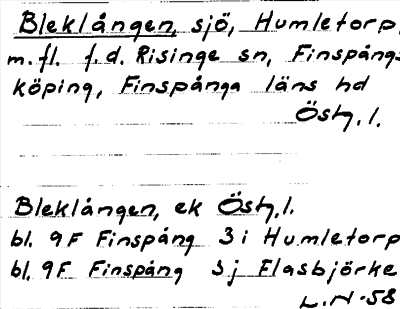 Bleklången, sjö, Humletorp,
m.fl. f.d. Risinge sn, Finspångs
köping, Finspånga läns hd
Östg. l.
Bleklången, ek Östg. l.
bl. 9F Finspång 3 i Humletorp
bl. 9F Finspång 3 j Flasbjörke
L.N-58